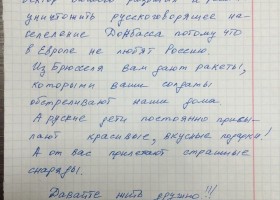 уничтожить русскоговорящее на-
селение Донбасса потому что
в Европе не любят Россию.
Из Брюсселя вам дают ракеты,
которыми ваши солдаты
обстреливают наши дома.
А русские дети постоянно присы-
лают красивые, вкусные подарки!
А от вас прилетают страшные
снаряды.
Давайте жить дружно!!!